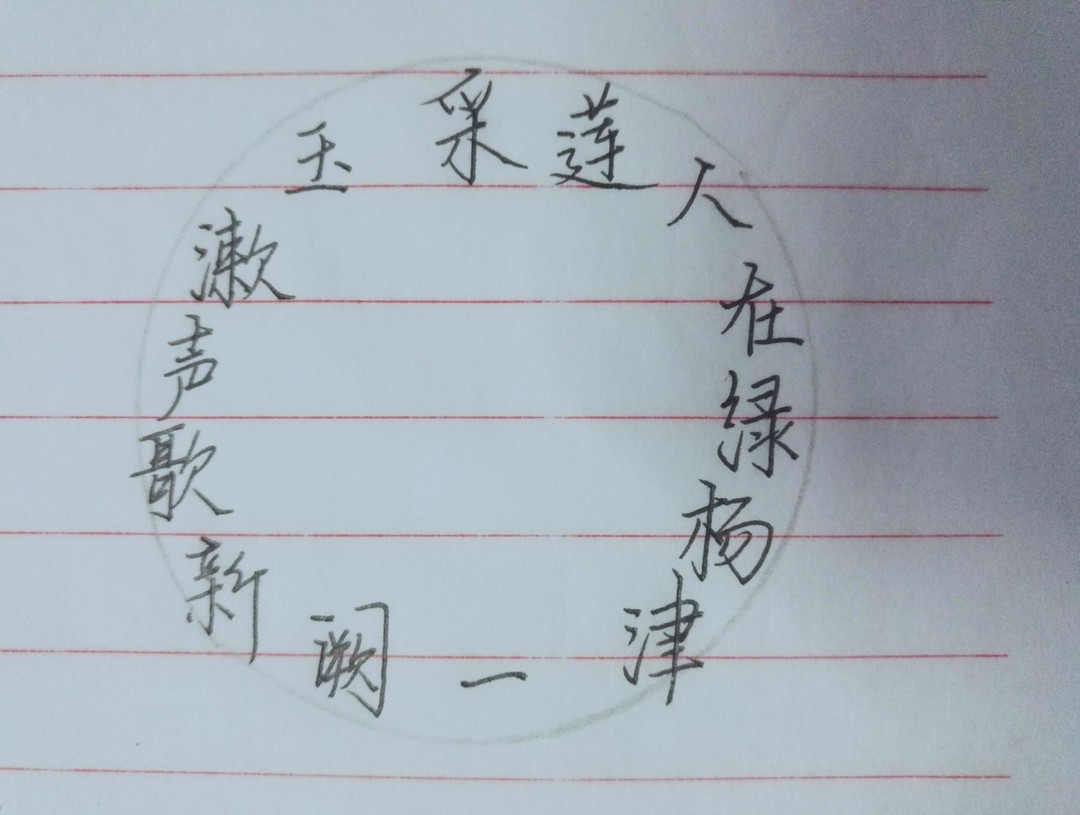 采莲人在绿杨津一阙新歌声漱玉